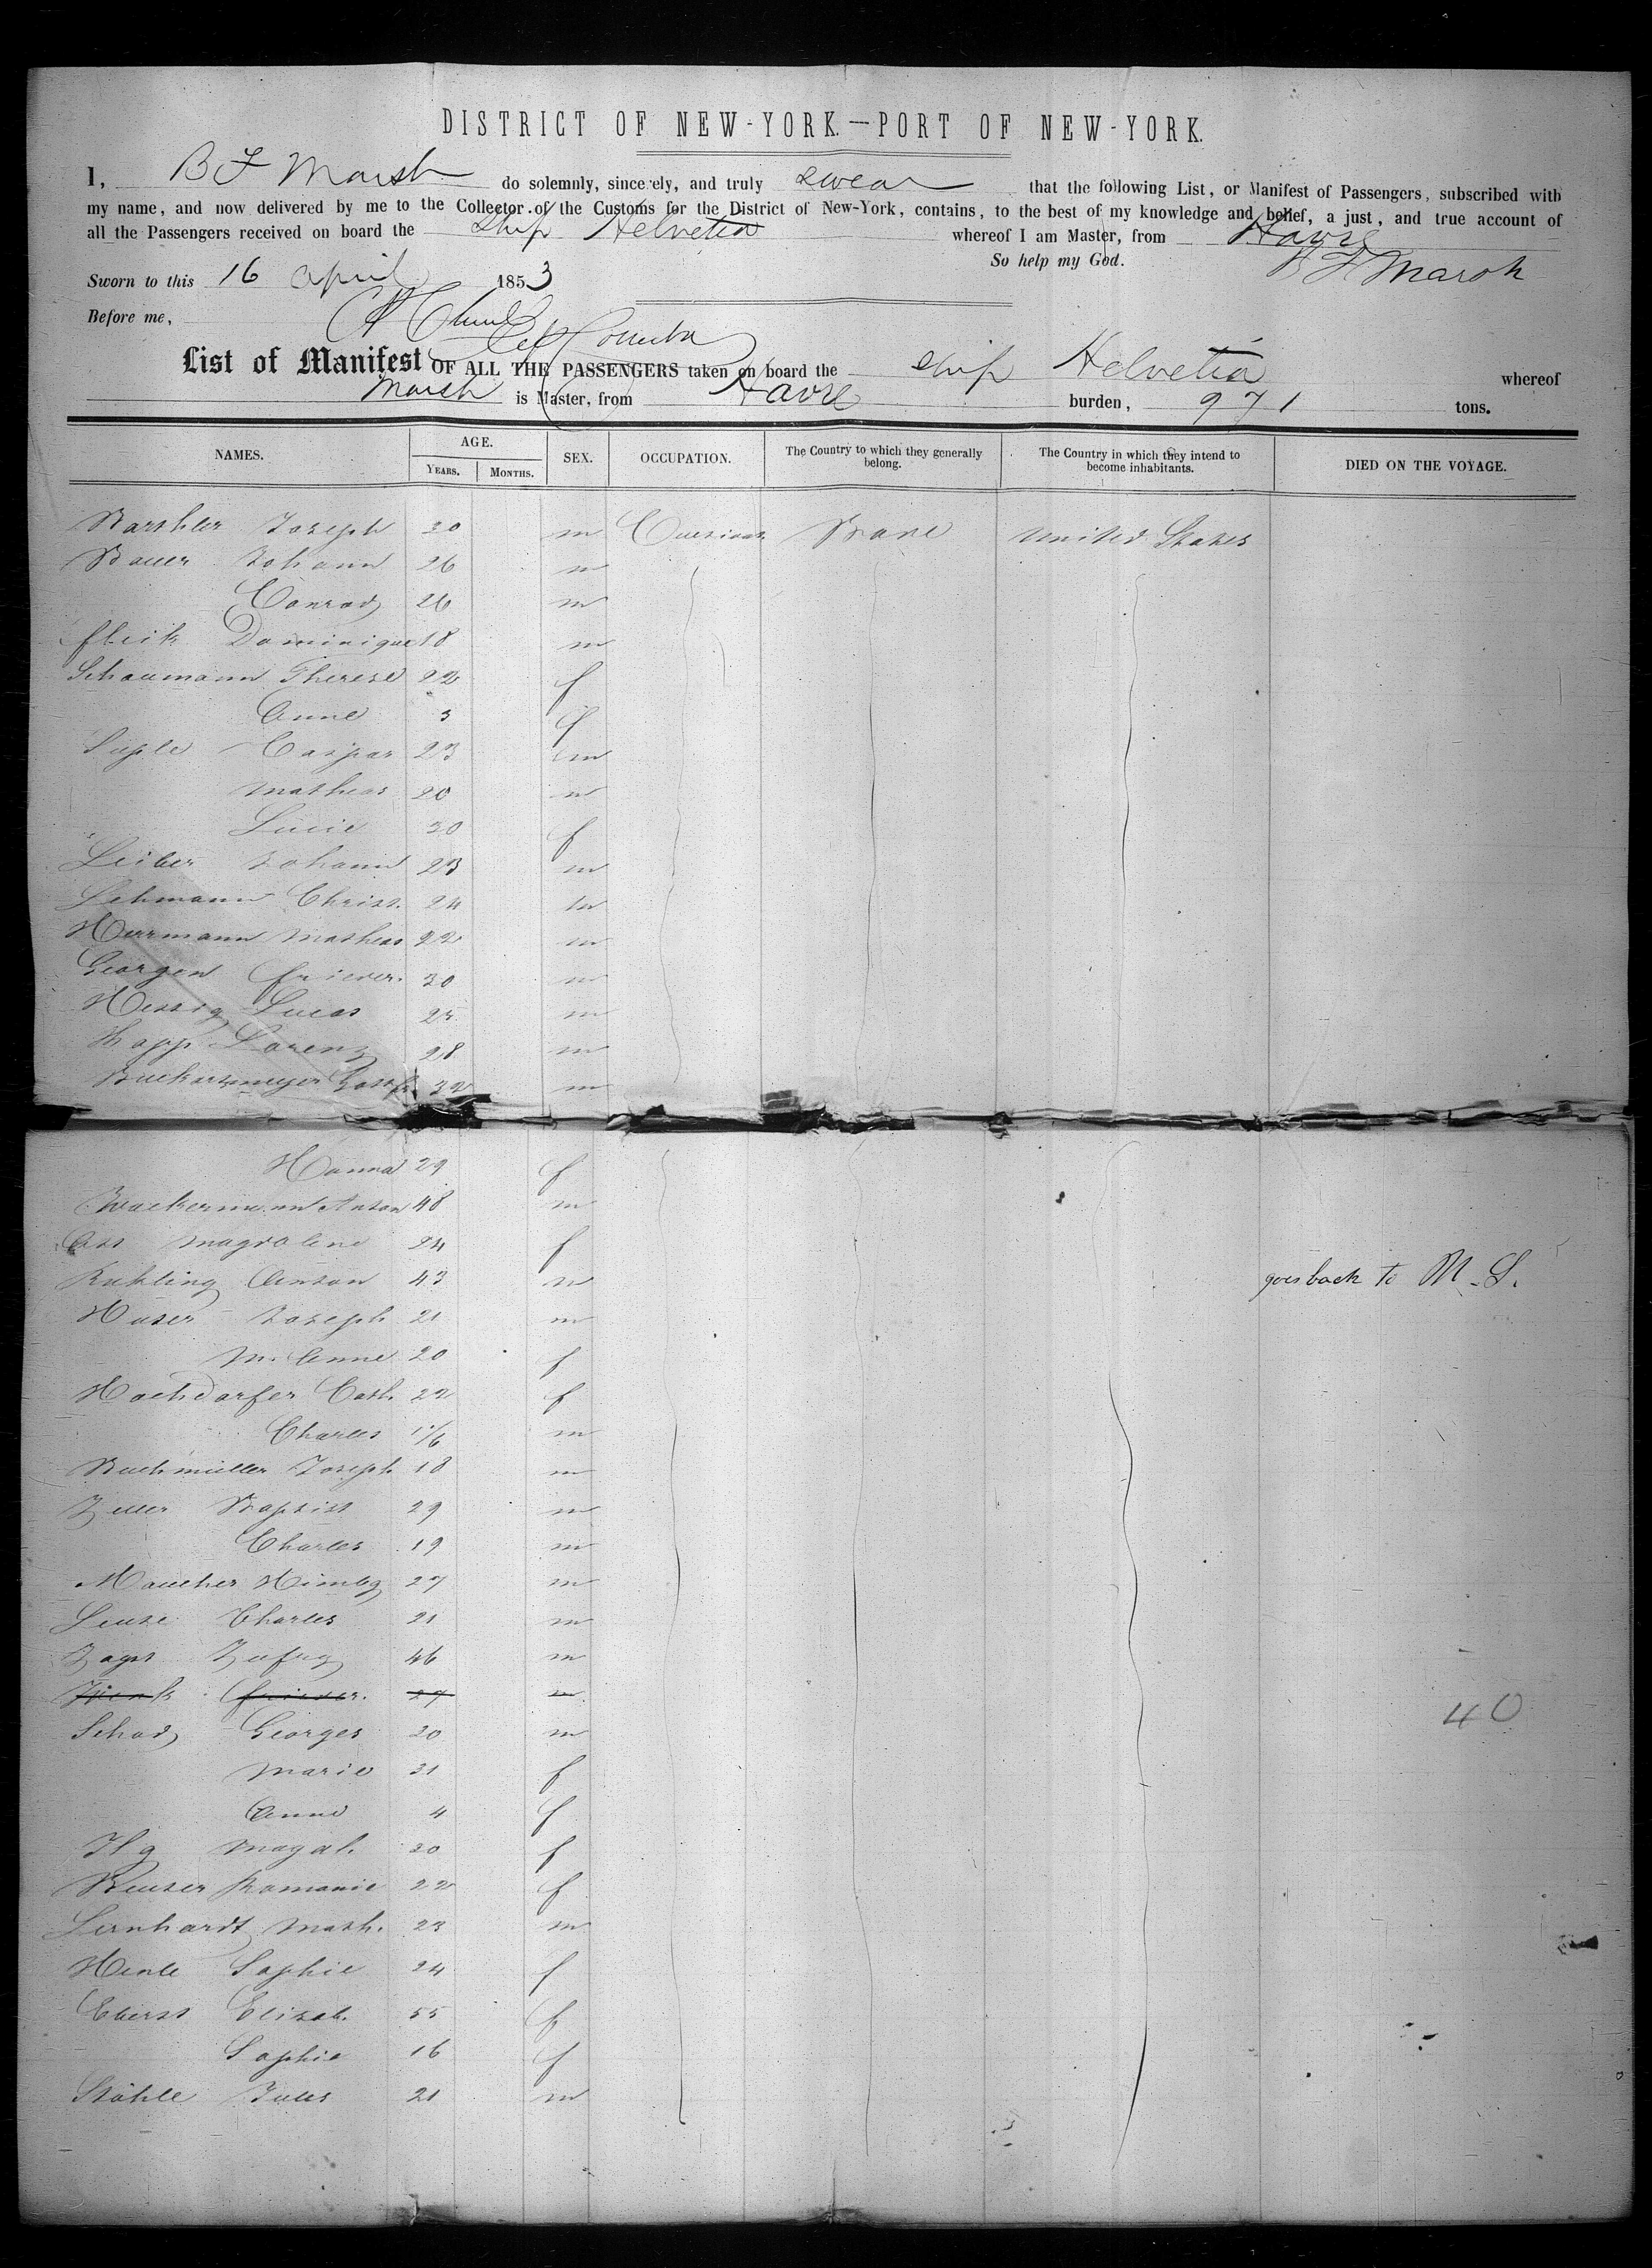 DISTRICT OF NEW-YORK.—PORT OF NEW-YORK.
I, B F Marsh do solemnly, sincerely, and truly swear that the following List, or Manifest of Passengers, subscribed with
my name, and now delivered by me to the Collector of the Customs for the District of New-York, contains, to the best of my knowledge and belief, a just, and true account of
all the Passengers received on board the ship Helvetia whereof I am Master, from Havre
So help my God. B F Marsh
Sworn to this 16 april 1853
Before me,
List of Manifest OF ALL THE PASSENGERS taken on board the ship Helvetia whereof
Marsh is Master, from Havre burden, 971 tons.
NAMES. AGE. YEARS. MONTHS. SEX. OCCUPATION. The Country to which they generally belong. The Country in which they intend to become inhabitants. DIED ON THE VOYAGE.
Joseph 30 m United States
Bauer Johann 26 m
Conrad 26 m
Dominique 18 m
Schaumann Therese 22 f
Anne 3 f
Caspar 23 m
Matheas 20 m
Lucie 30 f
Leiber Johann 23 m
Lehmann Christ. 24 m
Herrmann Matheas 22 m
Georgen Frieder. 30 m
Hessig Lucas 25 m
Happ Lorenz 28 m
32 m
Hanna 29 f
Anton 48 m
Magdalene 24 f
Ruhling Anton 43 m goes back to M.S.
Huser Joseph 21 m
M. Anne 20 f
Hochdorfer Cath. 22 f
Charles 1 1/6 m
Buchmuller Joseph 18 m
Zeller Baptist 29 m
Charles 19 m
Maucher 27 m
Charles 21 m
46 m
Frieder. 27 m
Schad Georges 30 m 40
Marie 31 f
Anne 4 f
Ilg Magal. 30 f
Beuser Romanie 22 f
Lernhardt Math. 23 m
Henle Sophie 24 f
Eberst Elisab. 55 f
Sophie 16 f
Stöhle Jules 21 m